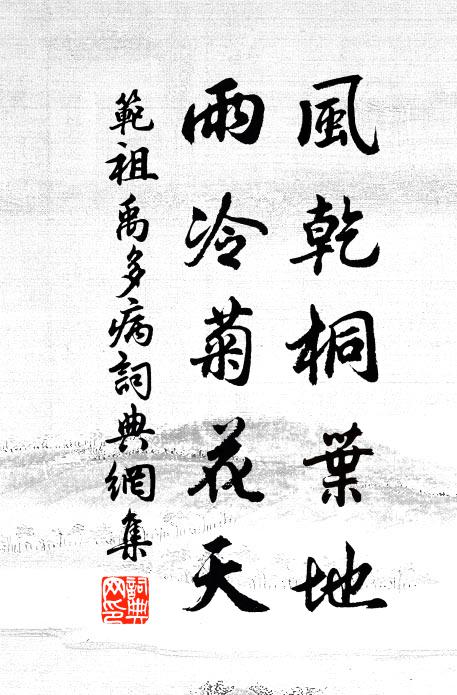 風乾桐葉地
雨冷菊花天
範祖禹多病詞典網集
詞典網印